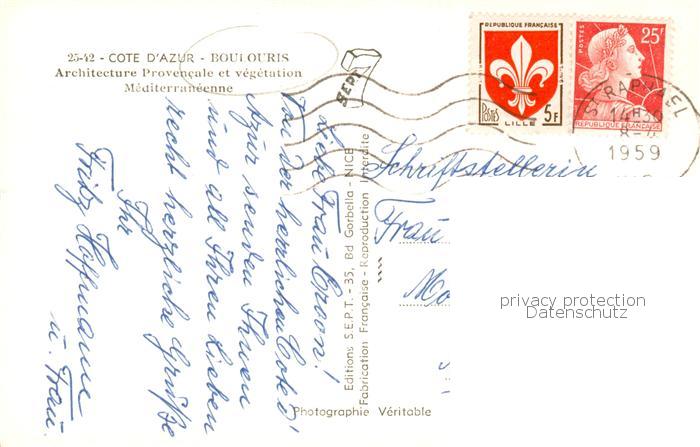 25-42 - COTE D'AZUR - BOULOURIS
Architecture Provençale et végétation
Méditerranéenne
SEPT
REPUBLIQUE FRANÇAISE
Postes
5F
LILLE
POSTES
25F
REPUBLIQUE FRANÇAISE
ST RAPHAEL
14H30
1959
Liebe Frau
Von der herrlichen Cote d'
Azur senden Ihnen
und all Ihren Lieben
recht herzliche Grüße
Ihr
Fritz Hoffmann
u. Frau.
Editions S.E.P.T. - 35, Bd Gorbella - NICE
Fabrication Française - Reproduction Interdite
Schriftstellerin
Frau
Mo
privacy protection
Datenschutz
Photographie Véritable